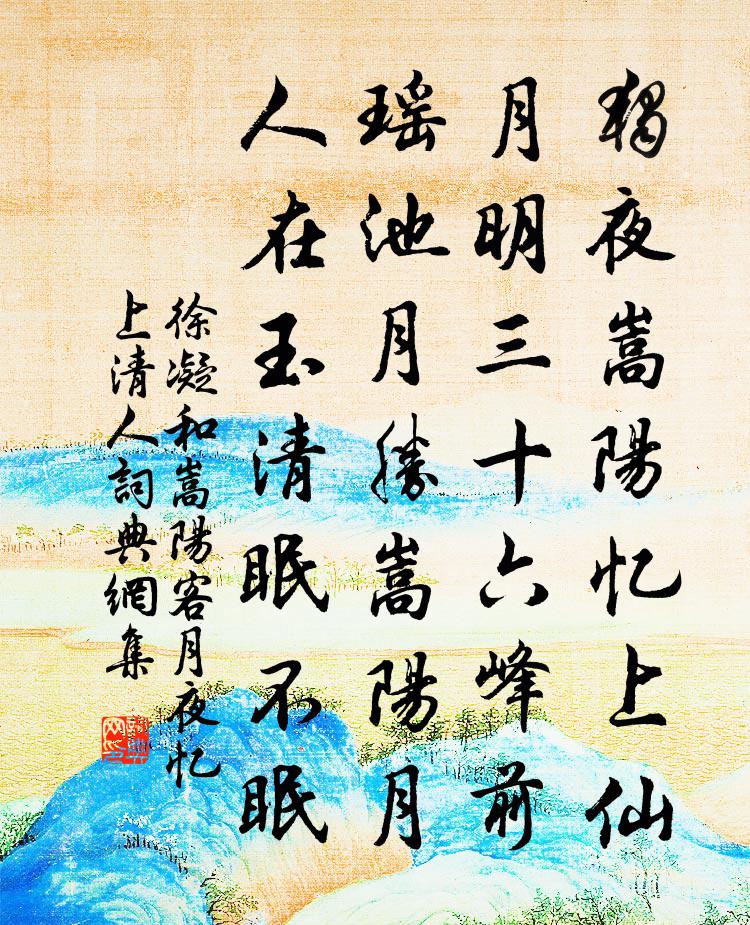 独夜嵩陽忆上仙
月明三十六峰前
瑶池月勝嵩陽月
人在玉清眠不眠
徐凝和嵩陽客月夜忆
上清人詞典網集